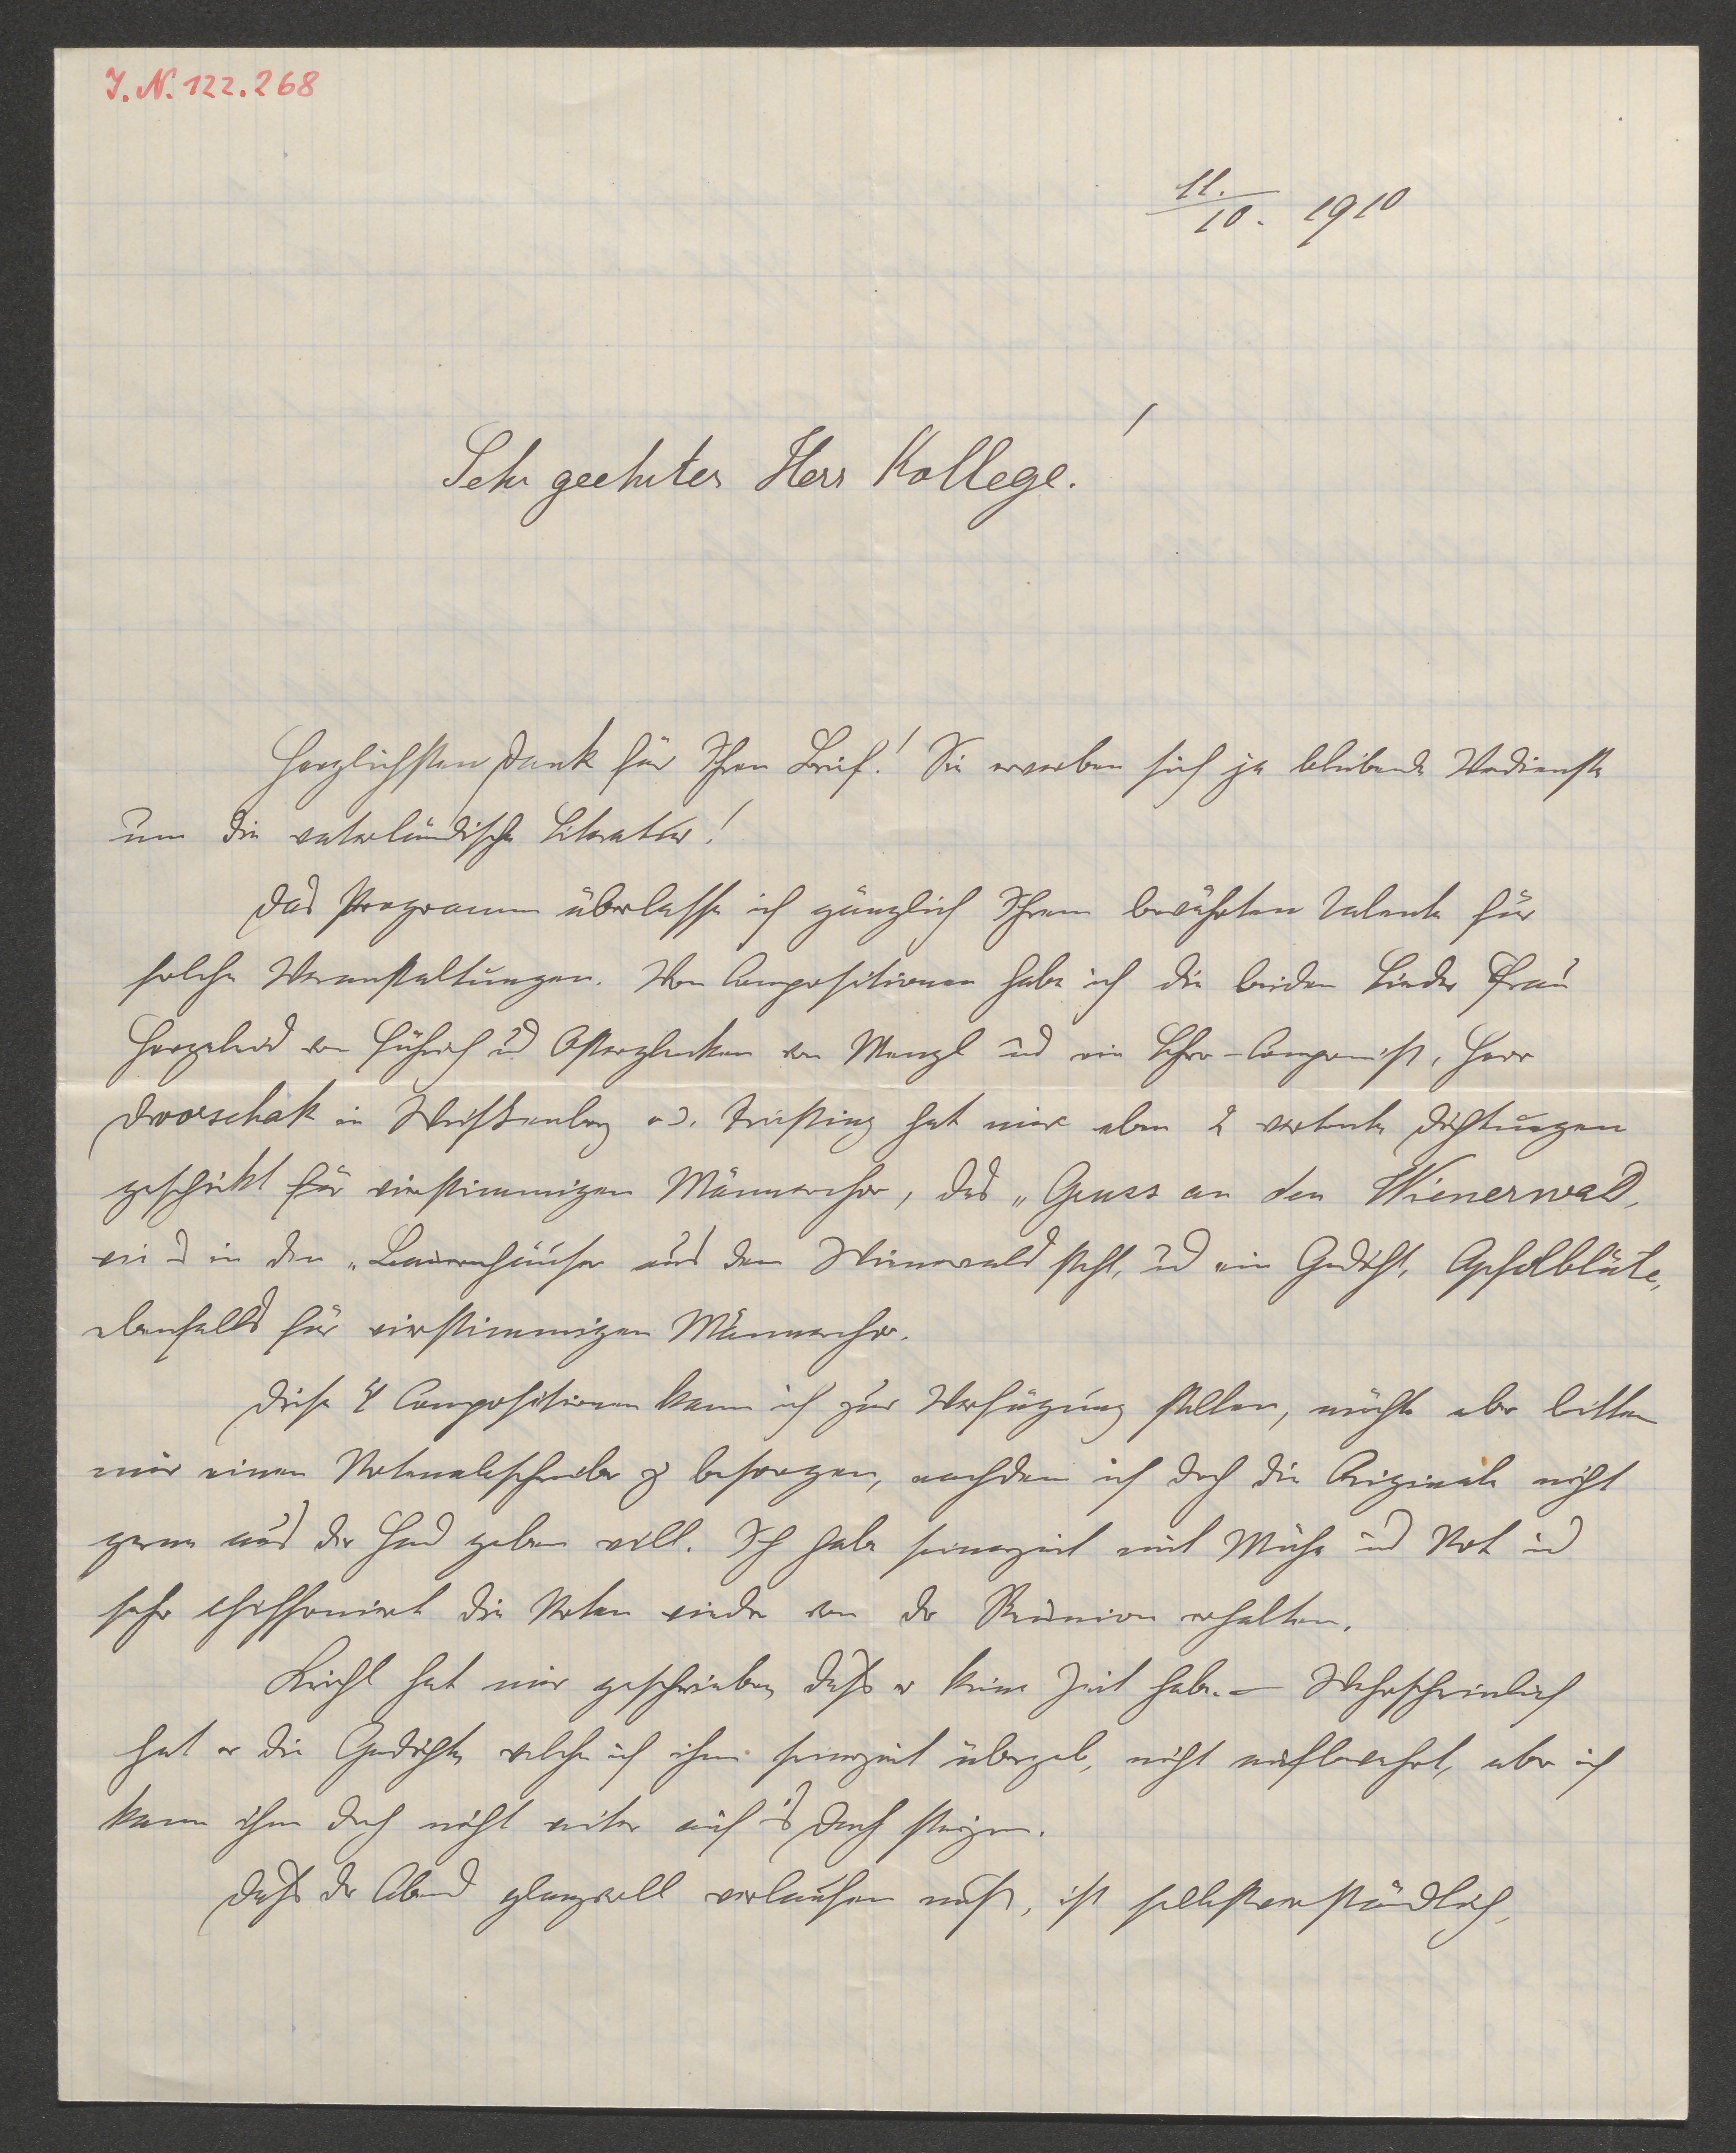 I. N. 122.268
11./10. 1910
Sehr geehrter Herr Kollege!
Herzlichsten Dank für Ihren Brief! Sie erwerben sich ja bleibende Verdienste
um die vaterländische Literatur!
Das Programm überlasse ich gänzlich Ihrem bewährten Talente für
solche Veranstaltungen. Von Compositionen habe ich die beiden Lieder Frau
Herzeleid von Führich und Osterglocken von Wenzl und ein Chor-Componist, Herr
Dworschak in Weissenbach a. d. Triesting hat mir eben 2 vertonte Dichtungen
geschickt für vierstimmigen Männerchor, das „Gruss an den Wienerwald,
wie es in den „Bauernhäuser aus dem Wienerwald steht, und ein Gedicht, Apfelblüte,
ebenfalls für vierstimmigen Männerchor.
Diese 4 Compositionen kann ich zur Verfügung stellen, möchte aber bitten
mir einen Notenabschreiber zu besorgen, nachdem ich doch die Originale nicht
gerne aus der Hand geben will. Ich habe seinerzeit mit Mühe und Not und
sehr chiffoniert die Noten wieder von der Reunion erhalten.
hat mir geschrieben, daß er keine Zeit habe. – Wahrscheinlich
hat er die Gedichte, welche ich ihm seinerzeit übergab, nicht aufbewahrt, aber ich
kann ihm doch nicht weiter aufs Dach steigen.
Daß der Abend glanzvoll verlaufen muß, ist selbstverständlich,